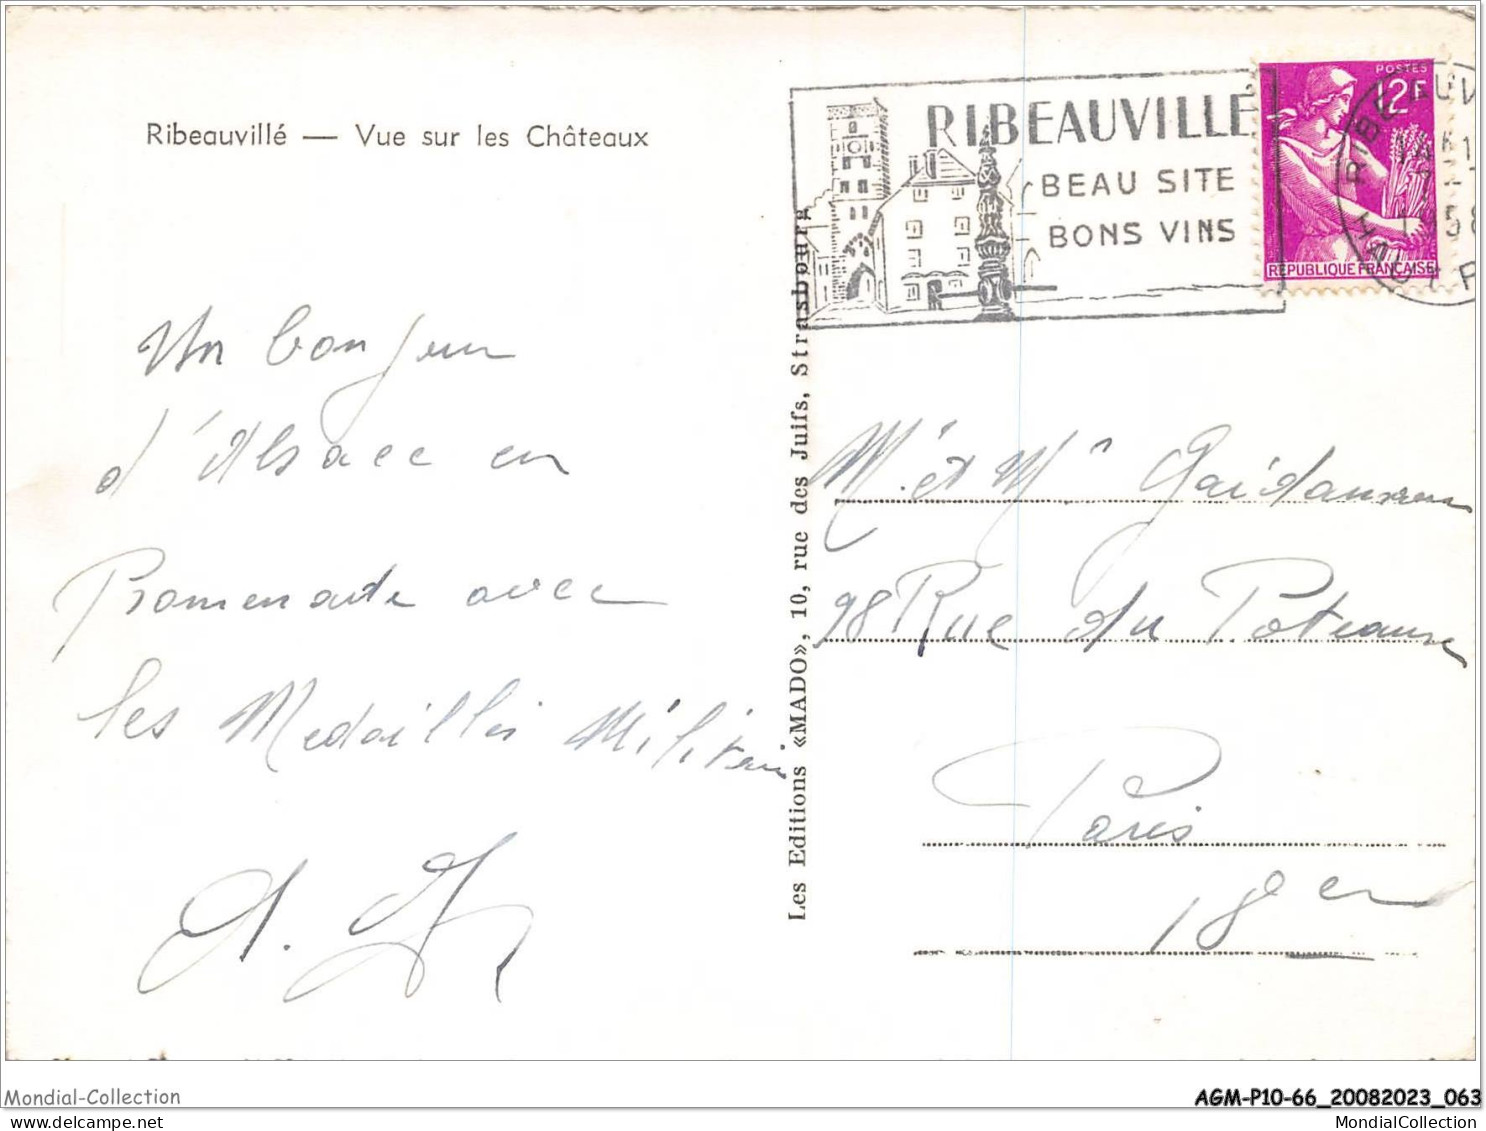 Ribeauvillé — Vue sur les Châteaux
RIBEAUVILLÉ
BEAU SITE
BONS VINS
POSTES
12F
REPUBLIQUE FRANÇAISE
1958
Un bonjour
d'Alsace en
Promenade avec
les Medaillés Militair
Les Editions «MADO», 10, rue des Juifs, Strasbourg
Mr et Me
98 Rue du Poteau
Paris
18e
Mondial-Collection
AGM-P10-66_20082023_063
www.delcampe.net
MondialCollection